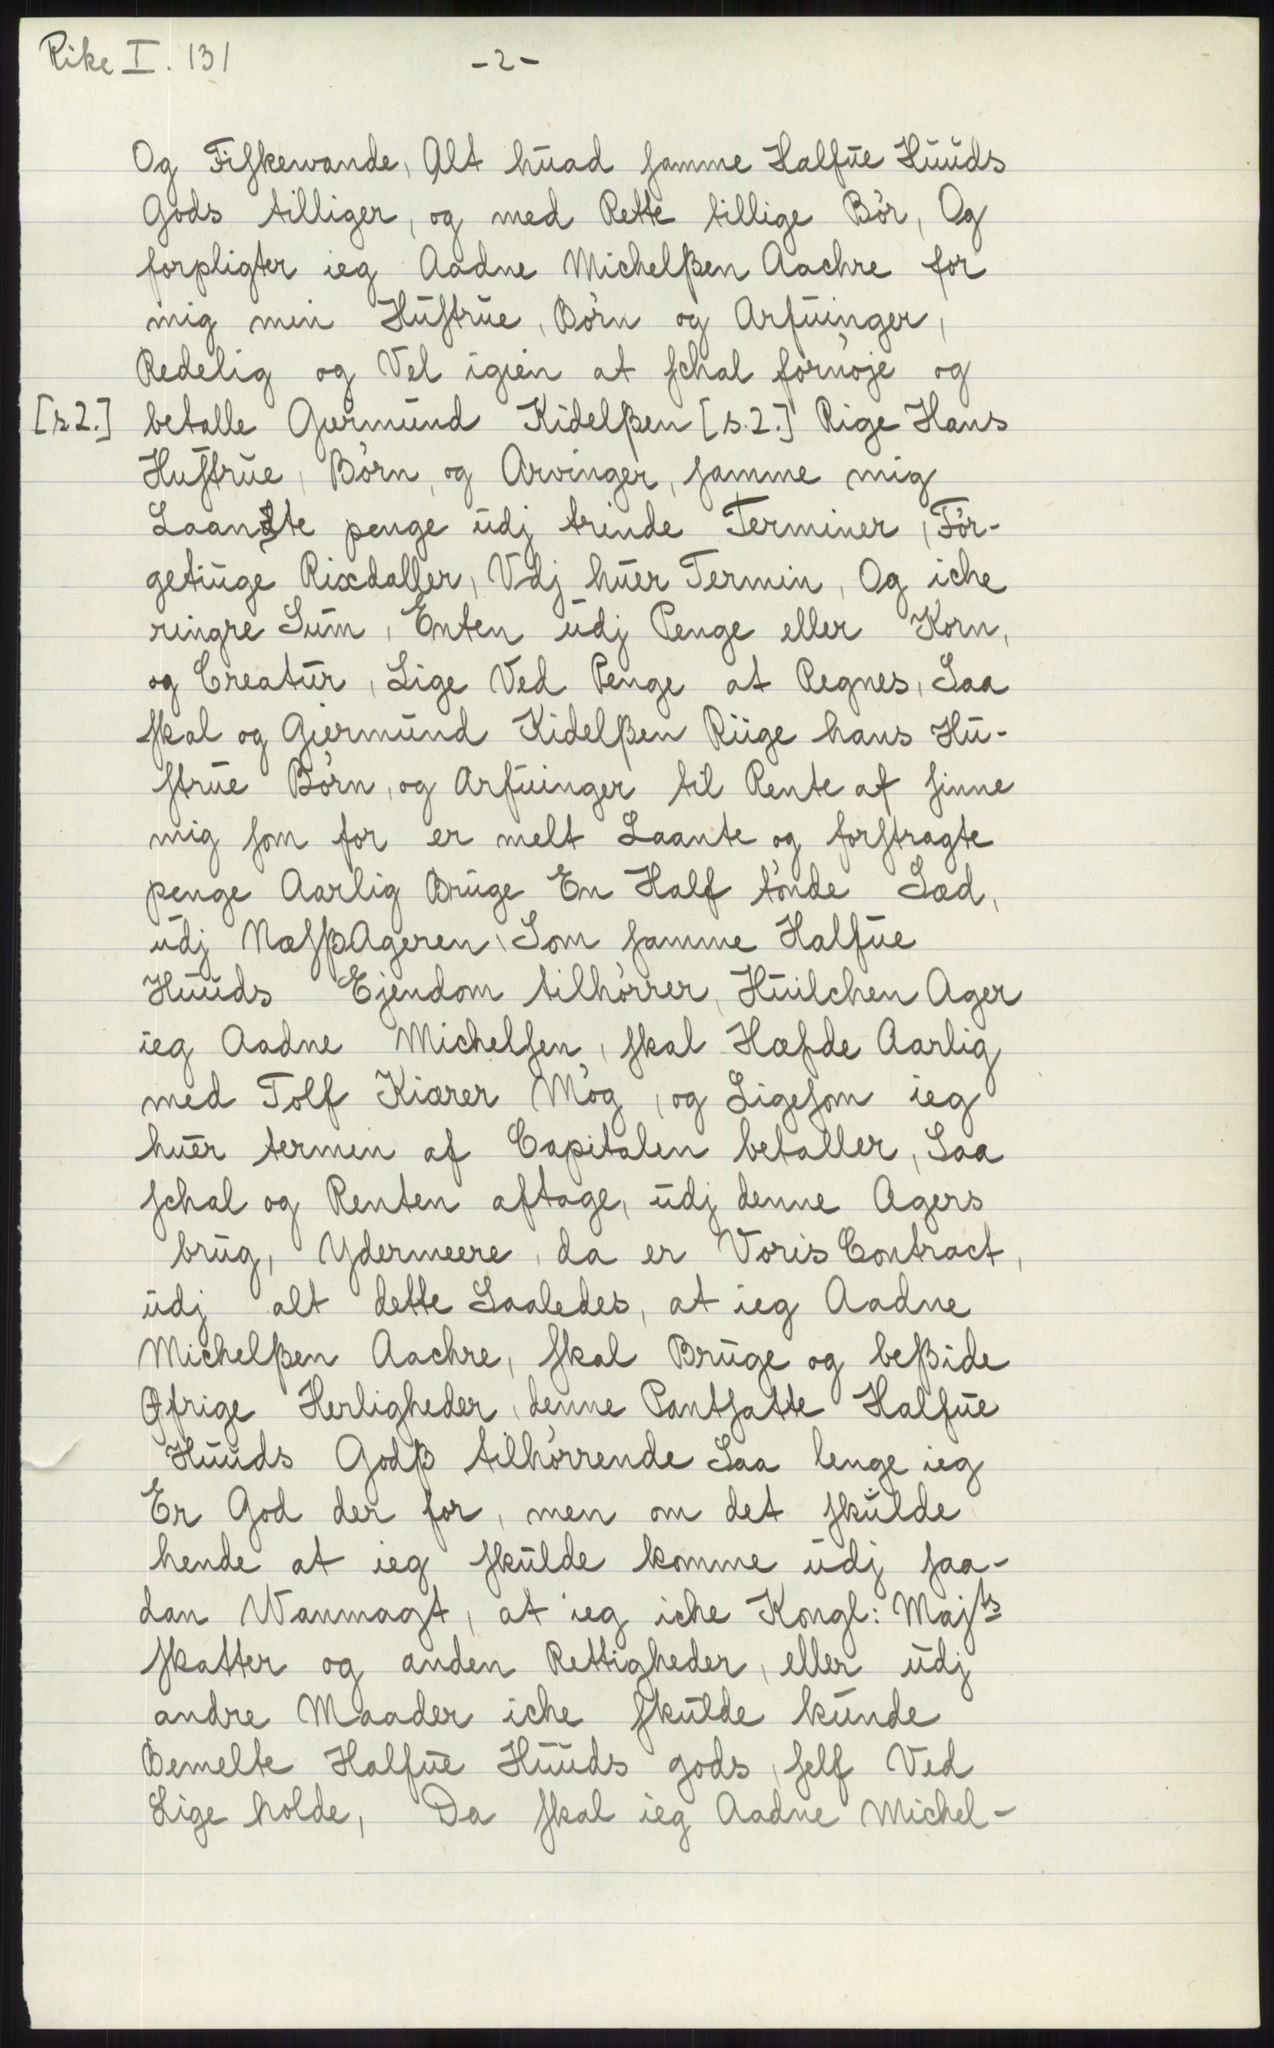 Rike I. 131
-2-
Og Fiſkevande, Alt huad ſamme Halfue Huuds
Gods tilliger, og med Rette tillige Bör, Og
forpligter ieg Aadne Michelßen Aachre for
mig min Huſtrue, Börn og Arfuinger,
Redelig og Vel igien at ſchal fornöje og
[s.2.] betalle Giermund Kidelßen [s.2.] Rige Hans
Huſtrue, Börn, og Arvinger, ſamme mig
Laante penge udj trinde Terminer, För-
getiuge Rixdaller, Vdj huer Termin, Og iche
ringre Sum, Enten udj Penge eller Korn,
og Creatur, Lige Ved Penge at Regnes, Saa
ſkal og Giermund Kidelßen Riige hans Hu-
ſtrue Börn, og Arfuinger til Rente af ſinne
mig ſom for er melt Laante og forſtragte
penge Aarlig Bruge En Half tönde Sæd,
udj NæſßAgeren, Som ſamme Halfue
Huuds Ejendom tilhörrer, Huilchen Ager
ieg Aadne Michelſen, ſkal Hæfde Aarlig
med Tolf Kiærer Mög, og Ligeſom ieg
huer termin af Capitalen betaller, Saa
ſchal og Renten aftage, udj denne Agers
brug, Ydermeere, da er Voris Contract,
udj alt dette Saaledes, at ieg Aadne
Michelßen Aachre, ſkal Bruge og beßide
Øfrige Herligheder, denne Pantſatte Halfue
Huuds Godß tilhörrende Saa lenge ieg
Er God der for, men om det ſkulde
hende at ieg ſkulde komme udj ſaa-
dan Wanmagt, at ieg iche Kongl: Majts
ſkatter og anden Rettigheder, eller udj
andre Maader iche ſkulde kunde
Bemelte Halfue Huuds gods, ſelf Ved
Lige holde, Da ſkal ieg Aadne Michel-